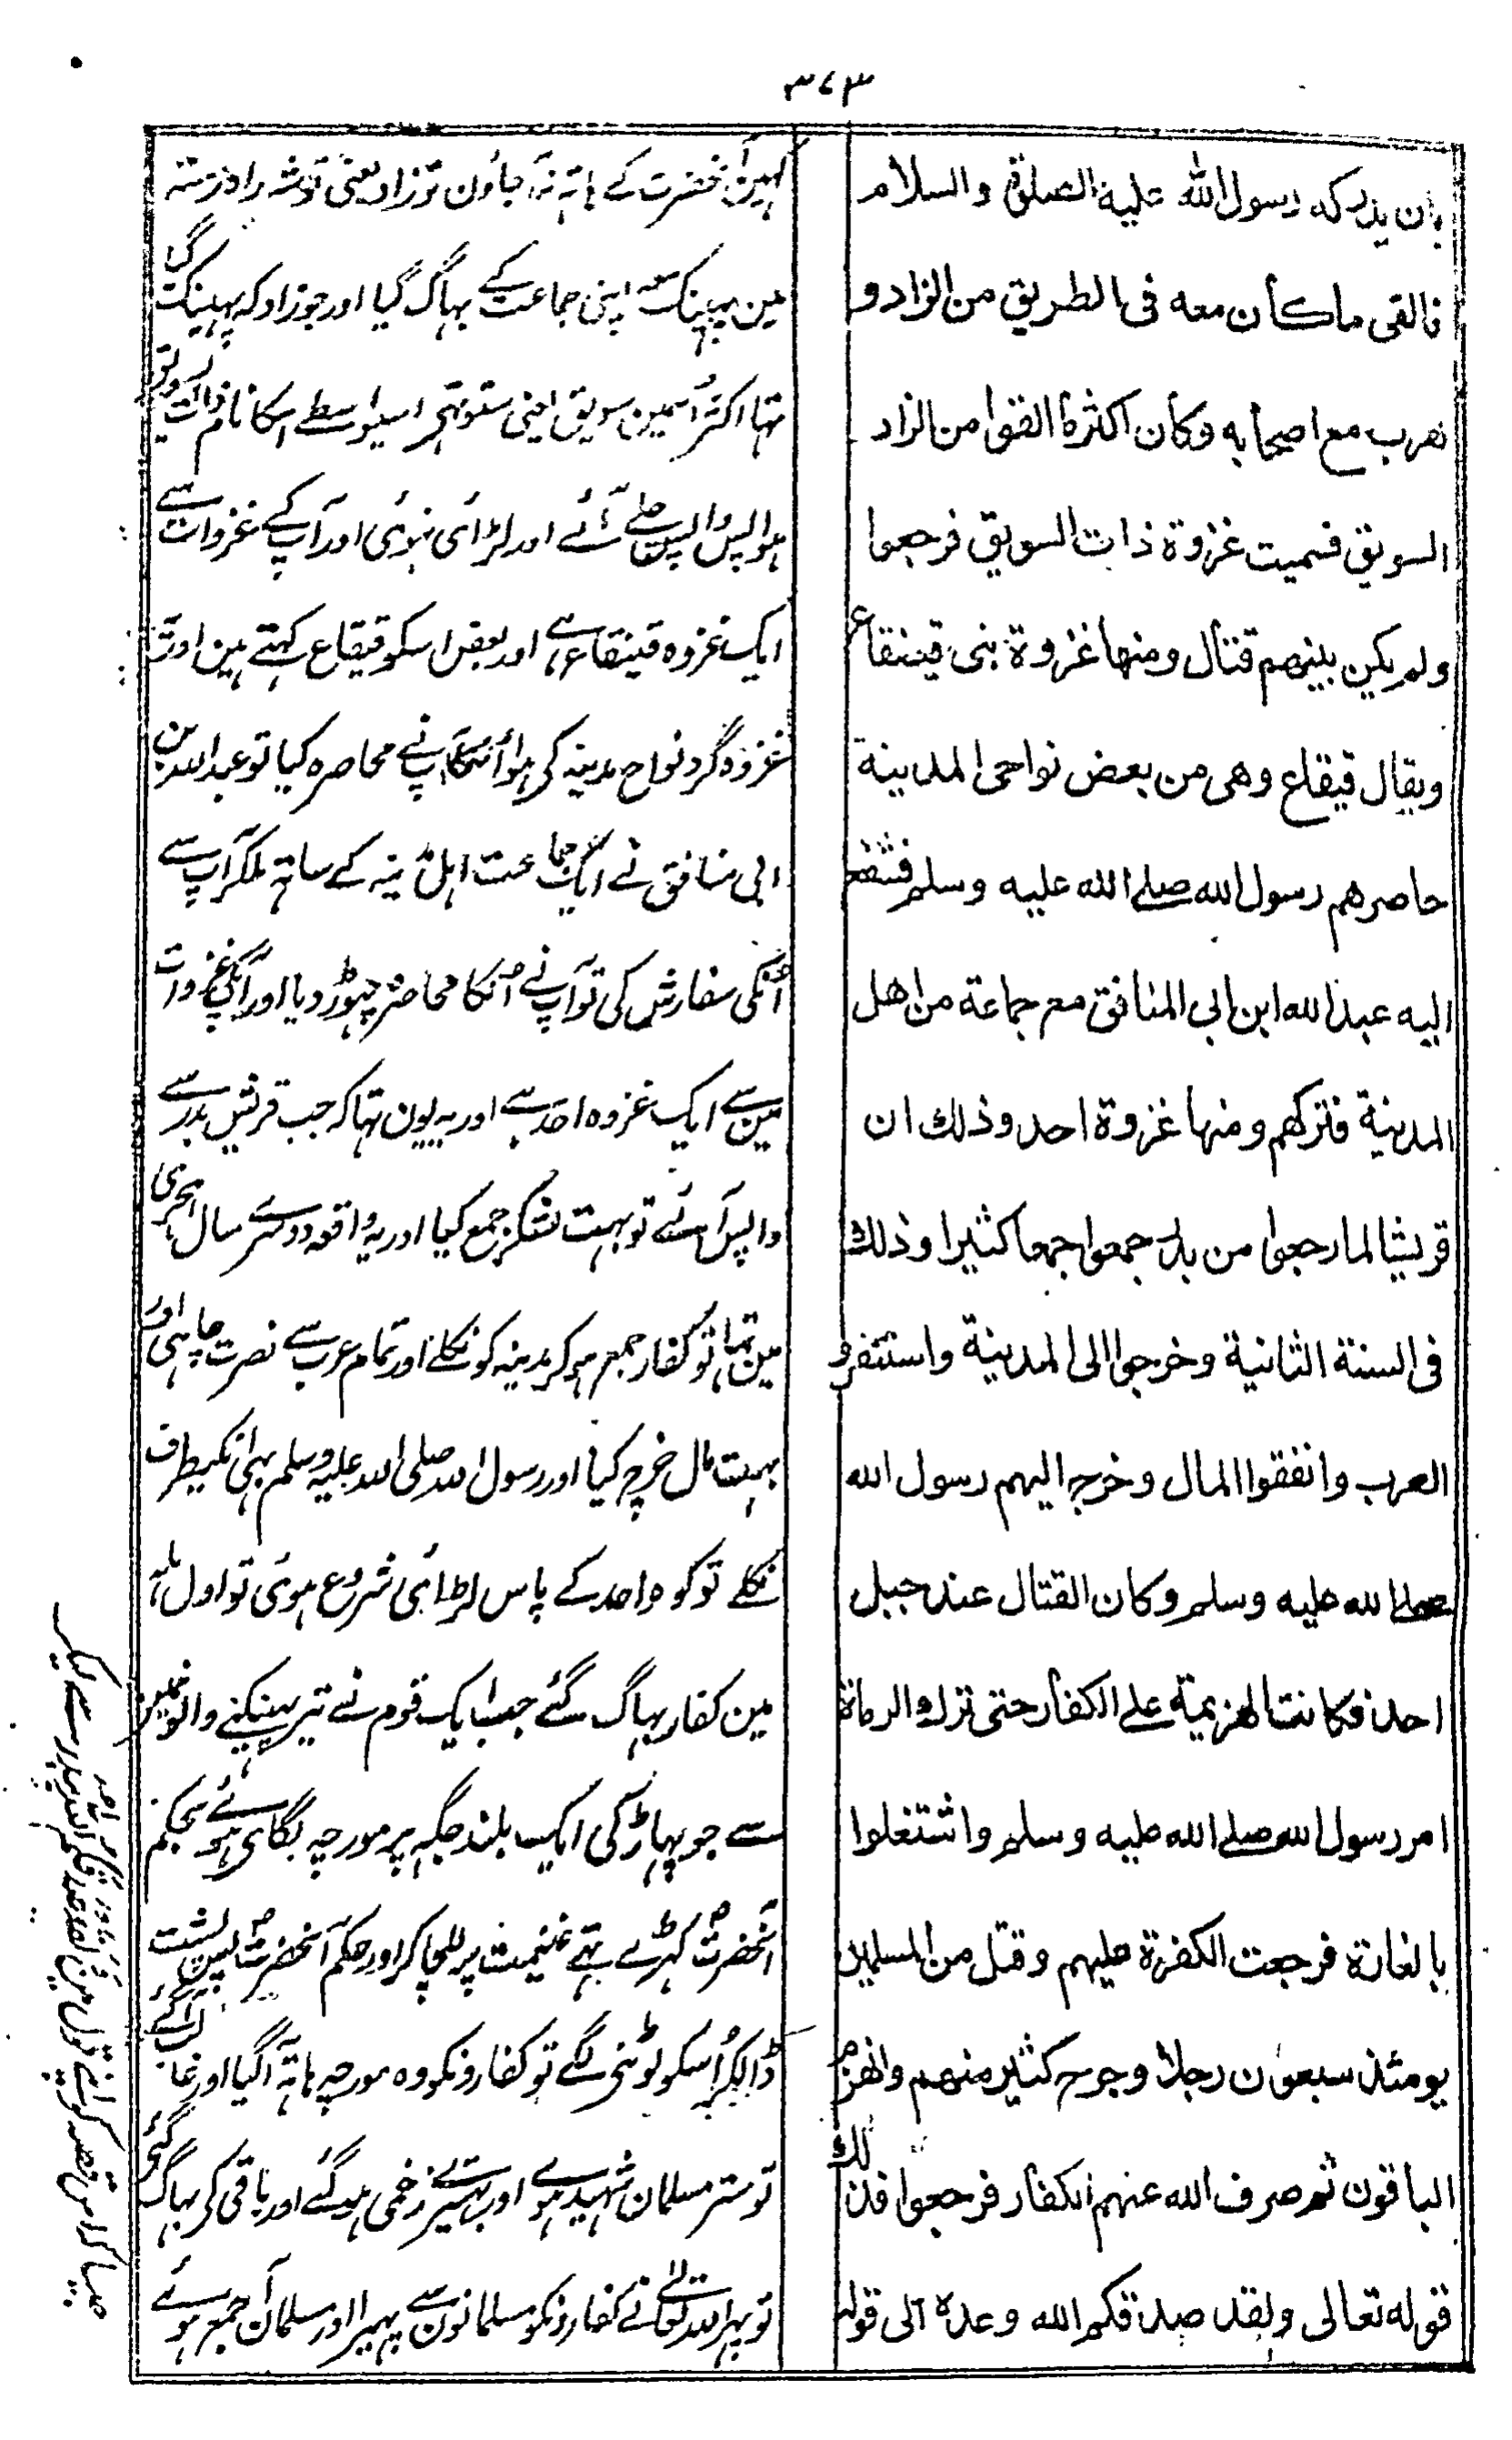 ٣٧٣
بان يدركه رسول الله عليه الصلوة والسلام
فالقى ما كان معه فى الطريق من الزاد و
هرب مع اصحابه وكان اكثرة القوا من الزاد
السويق فسميت غزوة ذات السويق فرجعوا
ولم يكن بينهم قتال ومنها غزوة بنى قينقاع
ويقال قيقاع وهى من بعض نواحى المدينة
حاصرهم رسول الله صلى الله عليه وسلم فشفع
اليه عبد الله ابن ابى المنافق مع جماعة من اهل
المدينة فتركهم ومنها غزوة احد وذلك ان
قريشا لما رجعوا من بدر جمعوا جمعا كثيرا وذلك
فى السنة الثانية وخرجوا الى المدينة واستنفروا
العرب وانفقوا المال وخرج اليهم رسول الله
صلى الله عليه وسلم وكان القتال عند جبل
احد فكانت الهزيمة على الكفار حتى ترك الرماة
امر رسول الله صلى الله عليه وسلم واشتغلوا
بالغارة فرجعت الكفرة عليهم وقتل من المسلمين
يومئذ سبعون رجلا وجرح كثير منهم وانهزم
الباقون ثم صرف الله عنهم الكفار فرجعوا فذلك
قوله تعالى ولقد صدقكم الله وعده الى قوله
کہین آنحضرت کے ہاتہ نہ آجاؤن تو زاد یعنی توشہ راہ رستہ
مین پہینک معہ اپنی جماعت کے بہاگ گیا اور جو زاد کہ پہینک گیا
تہا اکثر اُسمین سویق یعنی ستو تہے اسیواسطے اسکا نام ذات سویق
ہوا پس واپس چلے آئے اور لڑائی نہوئی اور آپ کے غزوات سے
ایک غزوہ قینقاع ہے اور بعض اسکو قیقاع کہتے ہین اور یہ
غزوہ گرد نواح مدینہ کی ہوا اُنکا آپ نے محاصرہ کیا تو عبد اللہ بن
ابی منافق نے ایک جماعت اہل مدینہ کے ساتہ ملکر آپ سے
اُنکی سفارش کی تو آپ نے اُنکا محاصرہ چہوڑ دیا اور آپکی غزوات
مین سے ایک غزوہ احد ہے اور یہ یون تہا کہ جب قریش بدر سے
واپس آئے تو بہت لشکر جمع کیا اور یہ واقعہ دوسرے سال ہجری
مین تہا تو کفار جمع ہو کر مدینہ کو نکلے اور تمام عرب سے نصرت چاہی اور
بہت مال خرچ کیا اور رسول اللہ صلی اللہ علیہ وسلم بہی انکیطرف
نکلے تو کوہ احد کے پاس لڑائی شروع ہوئی تو اول ہلہ
مین کفار بہاگ گئے جب ایک قوم نے تیر پہینکنے والونمین
سے جو پہاڑ کی ایک بلند جگہ پر مورچہ لگائے ہوئے بحکم
آنحضرت کہڑے تہے غنیمت پر للچا کر اور حکم آنحضرت پس پشت
ڈالکر اُسکو لوٹنی لگے تو کفارونکو وہ مورچہ ہاتہ آگیا اور غالب آگئے
تو ستر مسلمان شہید ہوے اور بہتیرے زخمی ہو گئے اور باقی کی بہاگ گئی
تو پہر اللہ تعالے نے کفارونکو مسلمانون سے پہیرا اور مسلمان آن جمع ہوئے